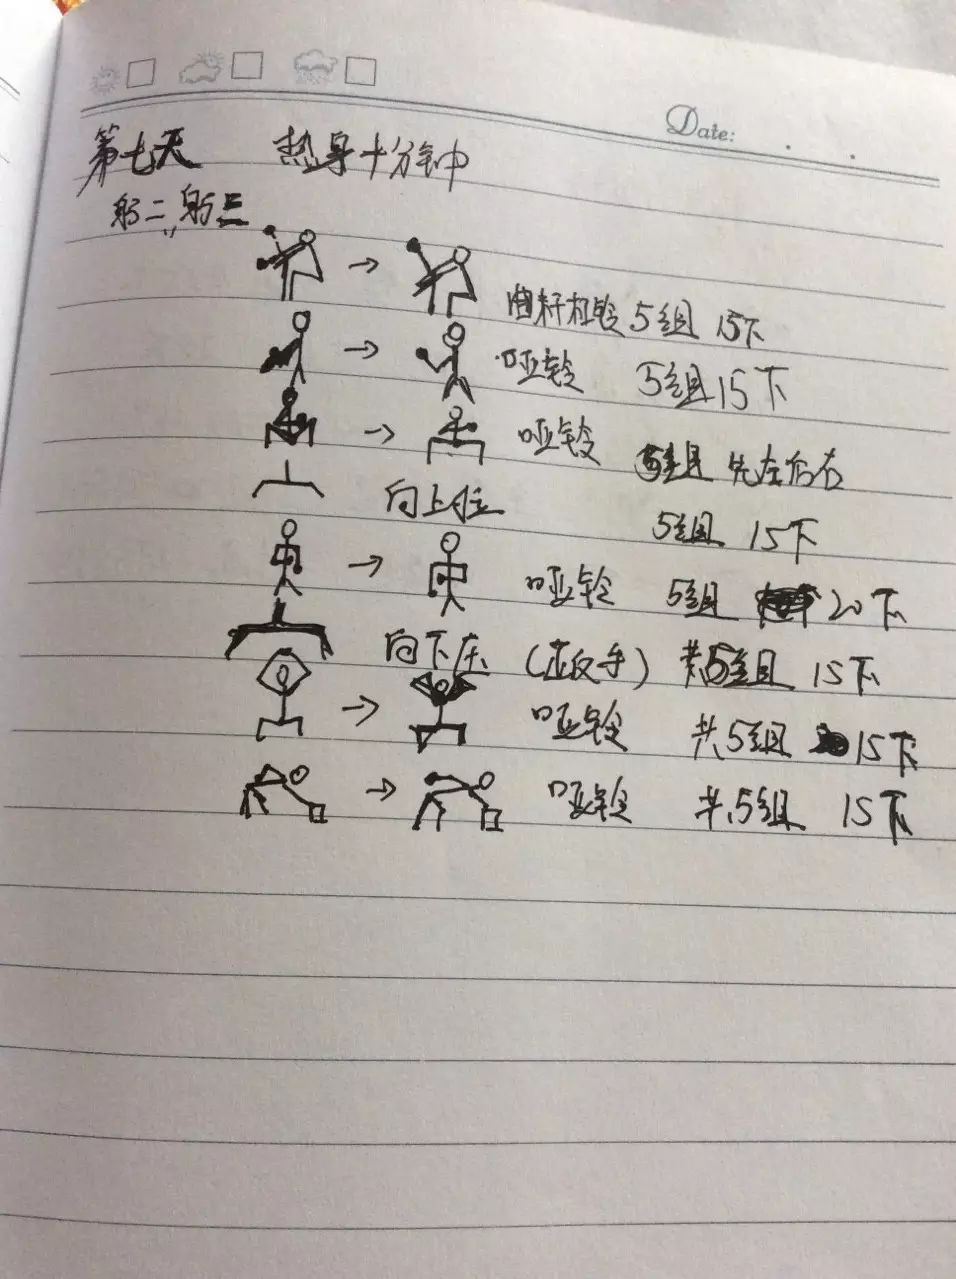 Date:
第七天 热身十分钟
肱二,, 肱三
曲杆杠铃 5组 15下
哑铃 5组 15下
哑铃 5组 先左后右
向上拉 5组 15下
哑铃 5组 20下
向下压 (正反手) 共5组 15下
哑铃 共5组 15下
哑铃 共5组 15下